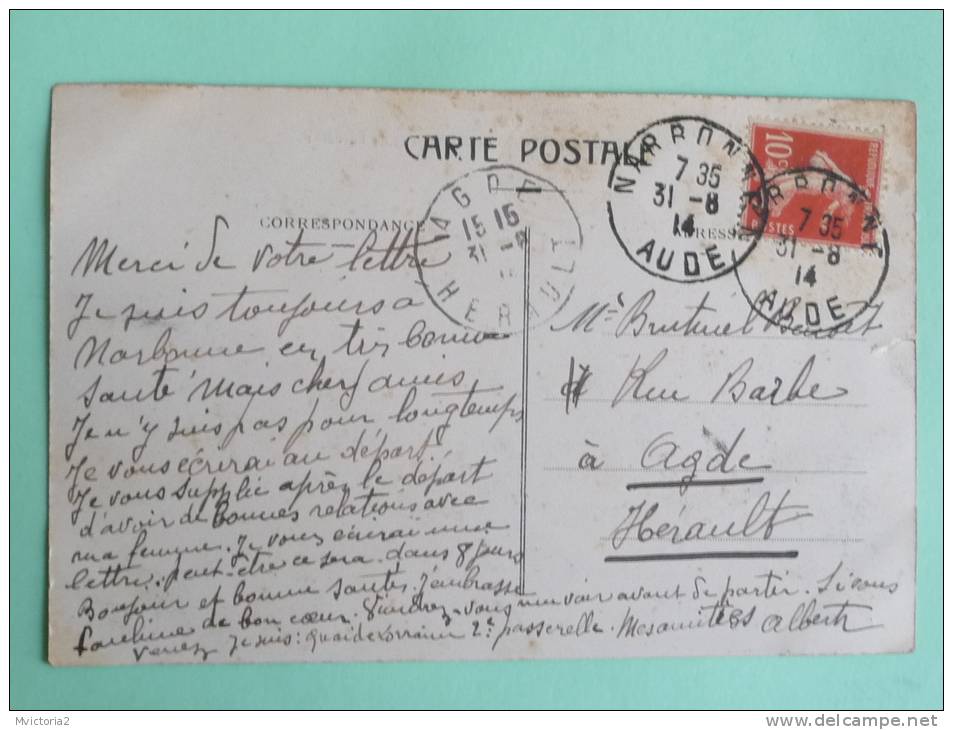 CARTE POSTALE
CORRESPONDANCE
ADRESSE
NARBONNE
7 35
31 -8
14
AUDE
NARBONNE
7 35
31 -8
14
AUDE
AGDE
15 15
31 -8
HERAULT
10c
POSTES
Merci de votre lettre
Je suis toujours a
Narbonne en très bonne
santé mais chers amis
Je n'y suis pas pour longtemps
Je vous écrirai au départ.
Je vous supplie après le départ
d'avoir de bonnes relations avec
ma femme. Je vous écrirai une
lettre. peut-être ce sera dans 8 jours
Bonjour et bonne santés. J'embrasse
de bon cœur. Viendrez-vous me voir avant de partir. Si vous
venez je suis: quai de Lorraine 2e passerelle. Mes amitiés Albert
Mr Benoit
Rue Barbe
à Agde
Hérault
Mvictoria2
www.delcampe.net